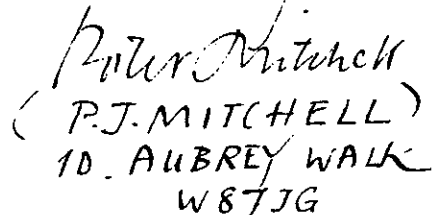 Peter Mitchell
(P.J. MITCHELL)
10. AUBREY WALK
W8 7JG